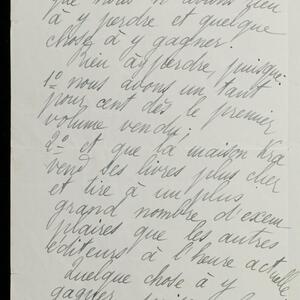 que nous n'avons rien
à y perdre et quelque
chose à y gagner.
Rien à y perdre, puisque:
1º nous avons un tant
pour cent dès le premier
volume vendu;
2º et que la maison Kra
vend ses livres plus cher
et tire à un plus
grand nombre d'exem
plaires que les autres
éditeurs à l'heure actuelle
Quelque chose à y
gagner